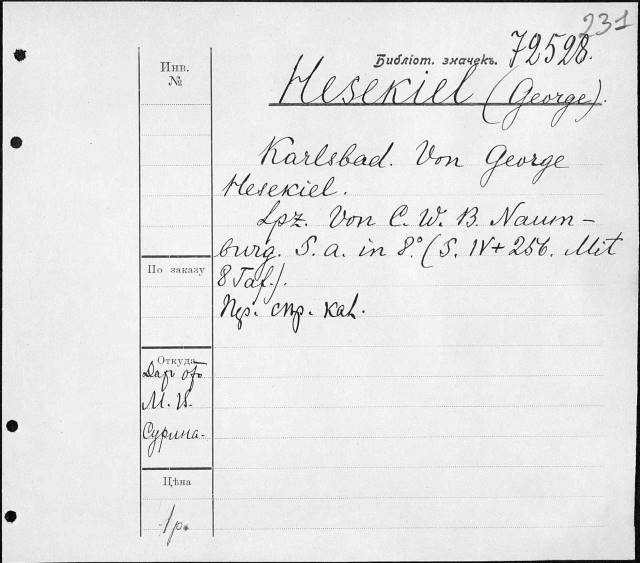 231
Библіот. значекъ. 72528.
Hesekiel (George).
Инв.
№
Karlsbad. Von George
Hesekiel.
Lpz. Von C. W. B. Naum-
burg. S. a. in 8° (S. IV + 256. Mit
8 Taf.).
По заказу
Откуда
Даръ отъ
М. И.
Сурина.
Цѣна
1 р.